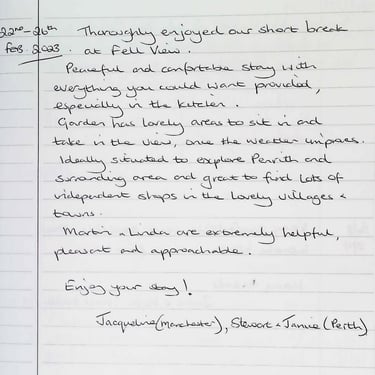 22nd-26th Thoroughly enjoyed our short break
Feb. 2023. at Fell View.
Peaceful and comfortable stay with
everything you could want provided,
especially in the kitchen.
Garden has lovely areas to sit in and
take in the view, once the weather improves.
Ideally situated to explore Penrith and
surrounding area and great to find lots of
independent shops in the lovely villages &
towns.
Martin & Linda are extremely helpful,
pleasant and approachable.
Enjoy your stay!
Jacqueline (Manchester), Stewart & Janine (Perth)